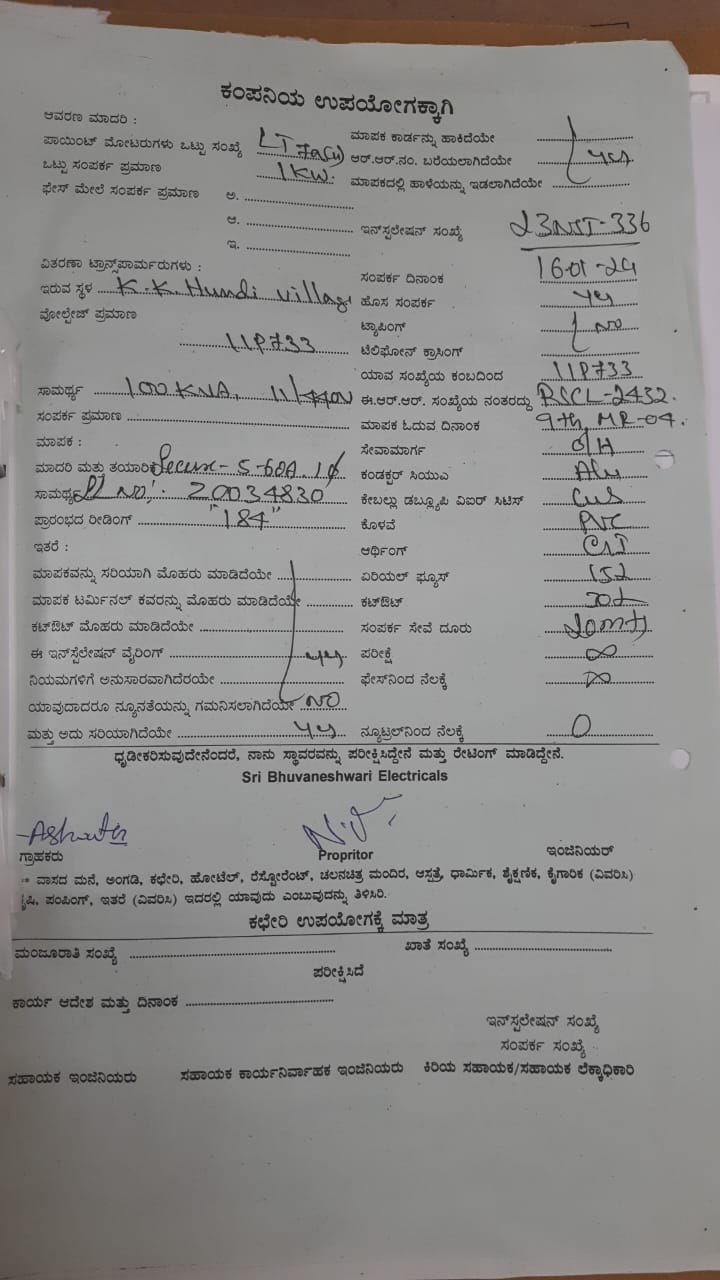 ಕಂಪನಿಯ ಉಪಯೋಗಕ್ಕಾಗಿ
ಆವರಣ ಮಾದರಿ :
ಪಾಯಿಂಟ್ ಮೋಟರುಗಳು ಒಟ್ಟು ಸಂಖ್ಯೆ LT ಮಾಪಕ ಕಾರ್ಡನ್ನು ಹಾಕಿದೆಯೇ
ಒಟ್ಟು ಸಂಪರ್ಕ ಪ್ರಮಾಣ 1KW. ಆರ್.ಆರ್.ನಂ. ಬರೆಯಲಾಗಿದೆಯೇ yes
ಫೇಸ್ ಮೇಲೆ ಸಂಪರ್ಕ ಪ್ರಮಾಣ ಅ. ಮಾಪಕದಲ್ಲಿ ಹಾಳೆಯನ್ನು ಇಡಲಾಗಿದೆಯೇ
ಆ. ಇನ್‌ಸ್ಟಲೇಷನ್ ಸಂಖ್ಯೆ 23NST-336
ಇ.
ವಿತರಣಾ ಟ್ರಾನ್ಸ್‌ಪಾರ್ಮರುಗಳು : ಸಂಪರ್ಕ ದಿನಾಂಕ 16-01-24
ಇರುವ ಸ್ಥಳ K.K. Hundi village ಹೊಸ ಸಂಪರ್ಕ yes
ವೋಲ್ಟೇಜ್ ಪ್ರಮಾಣ 11P733 ಟ್ಯಾಪಿಂಗ್ NO
ಟೆಲಿಫೋನ್ ಕ್ರಾಸಿಂಗ್
ಯಾವ ಸಂಖ್ಯೆಯ ಕಂಬದಿಂದ 11P733
ಸಾಮರ್ಥ್ಯ 100 KVA, 11/440V ಈ.ಆರ್.ಆರ್. ಸಂಖ್ಯೆಯ ನಂತರದ್ದು RSCL-2432.
ಸಂಪರ್ಕ ಪ್ರಮಾಣ ಮಾಪಕ ಓದುವ ದಿನಾಂಕ 9th, MR-04.
ಮಾಪಕ : ಸೇವಾಮಾರ್ಗ O/H
ಮಾದರಿ ಮತ್ತು ತಯಾರಿ Secure- 5-60A. 1ϕ ಕಂಡಕ್ಟರ್ ಸಿಯುಎ Alu
ಸಾಮರ್ಥ್ಯ Sl NO: 20034830 ಕೇಬಲ್ಲು ಡಬ್ಲ್ಯೂಪಿ ವಿಐರ್ ಸಿಟಿಸ್
ಪ್ರಾರಂಭದ ರೀಡಿಂಗ್ "184" ಕೊಳವೆ PVC
ಇತರೆ : ಆರ್ಥಿಂಗ್
ಮಾಪಕವನ್ನು ಸರಿಯಾಗಿ ಮೊಹರು ಮಾಡಿದೆಯೇ ಏರಿಯಲ್ ಫ್ಯೂಸ್
ಮಾಪಕ ಟರ್ಮಿನಲ್ ಕವರನ್ನು ಮೊಹರು ಮಾಡಿದೆಯೇ ಕಟ್‌ಔಟ್
ಕಟ್‌ಔಟ್ ಮೊಹರು ಮಾಡಿದೆಯೇ ಸಂಪರ್ಕ ಸೇವೆ ದೂರು
ಈ ಇನ್‌ಸ್ಟೆಲೇಷನ್ ವೈರಿಂಗ್ yes ಪರೀಕ್ಷೆ ∞
ನಿಯಮಗಳಿಗೆ ಅನುಸಾರವಾಗಿದೆರಯೇ ಫೇಸ್‌ನಿಂದ ನೆಲಕ್ಕೆ ∞
ಯಾವುದಾದರೂ ನ್ಯೂನತೆಯನ್ನು ಗಮನಿಸಲಾಗಿದೆಯೇ NO
ಮತ್ತು ಅದು ಸರಿಯಾಗಿದೆಯೇ yes ನ್ಯೂಟ್ರಲ್‌ನಿಂದ ನೆಲಕ್ಕೆ 0
ಧೃಡೀಕರಿಸುವುದೇನೆಂದರೆ, ನಾನು ಸ್ಥಾವರವನ್ನು ಪರೀಕ್ಷಿಸಿದ್ದೇನೆ ಮತ್ತು ರೇಟಿಂಗ್ ಮಾಡಿದ್ದೇನೆ.
Sri Bhuvaneshwari Electricals
ಗ್ರಾಹಕರು Propritor ಇಂಜಿನಿಯರ್
ವಾಸದ ಮನೆ, ಅಂಗಡಿ, ಕಛೇರಿ, ಹೋಟೆಲ್, ರೆಸ್ಟೋರೆಂಟ್, ಚಲನಚಿತ್ರ ಮಂದಿರ, ಆಸ್ಪತ್ರೆ, ಧಾರ್ಮಿಕ, ಶೈಕ್ಷಣಿಕ, ಕೈಗಾರಿಕ (ವಿವರಿಸಿ)
ಪಂಪಿಂಗ್, ಇತರೆ (ವಿವರಿಸಿ) ಇದರಲ್ಲಿ ಯಾವುದು ಎಂಬುವುದನ್ನು ತಿಳಿಸಿರಿ.
ಕಛೇರಿ ಉಪಯೋಗಕ್ಕೆ ಮಾತ್ರ
ಮಂಜೂರಾತಿ ಸಂಖ್ಯೆ ಖಾತೆ ಸಂಖ್ಯೆ
ಪರೀಕ್ಷಿಸಿದೆ
ಕಾರ್ಯ ಆದೇಶ ಮತ್ತು ದಿನಾಂಕ
ಇನ್‌ಸ್ಟಲೇಷನ್ ಸಂಖ್ಯೆ
ಸಂಪರ್ಕ ಸಂಖ್ಯೆ
ಸಹಾಯಕ ಇಂಜಿನಿಯರು ಸಹಾಯಕ ಕಾರ್ಯನಿರ್ವಾಹಕ ಇಂಜಿನಿಯರು ಕಿರಿಯ ಸಹಾಯಕ/ಸಹಾಯಕ ಲೆಕ್ಕಾಧಿಕಾರಿ